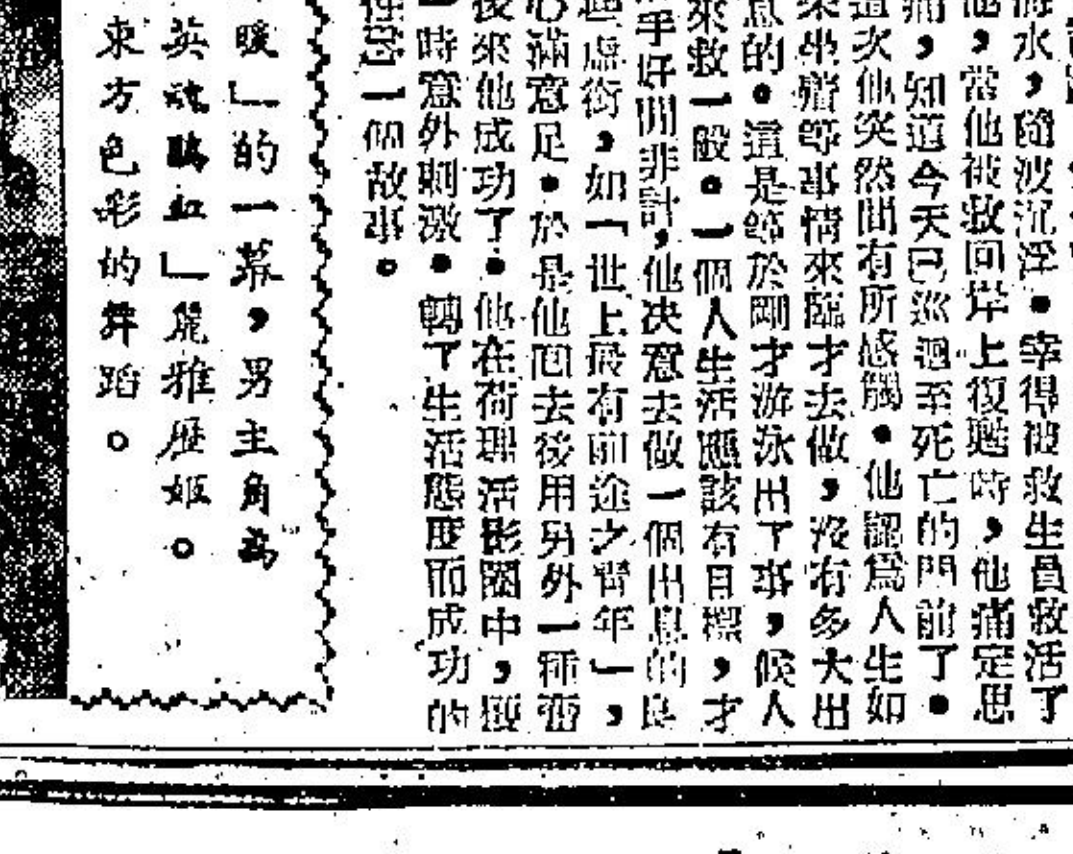 海水，隨波沉浮。幸得被救生員救活了
他，當他被救回岸上復甦時，他痛定思
痛，知道今天已巡迴至死亡的門前了。
這次他突然間有所感觸。他認爲人生如
事情來臨才去做，沒有多大出
意的。這是等於剛才游泳出了事，候人
來救一般。一個人生活應該有目標，才
手好閒非計，他决意去做一個出息的
虛銜，如「世上最有前途之青年」，
心滿意足。於是他回去後用另外一種
後來他成功了。他在荷理活影圈中，
一時意外刺激。轉了生活態度而成功的
一個故事。
暖」的一幕，男主角為
英魂鵑血」麗雅歷姬。
東方色彩的舞蹈。